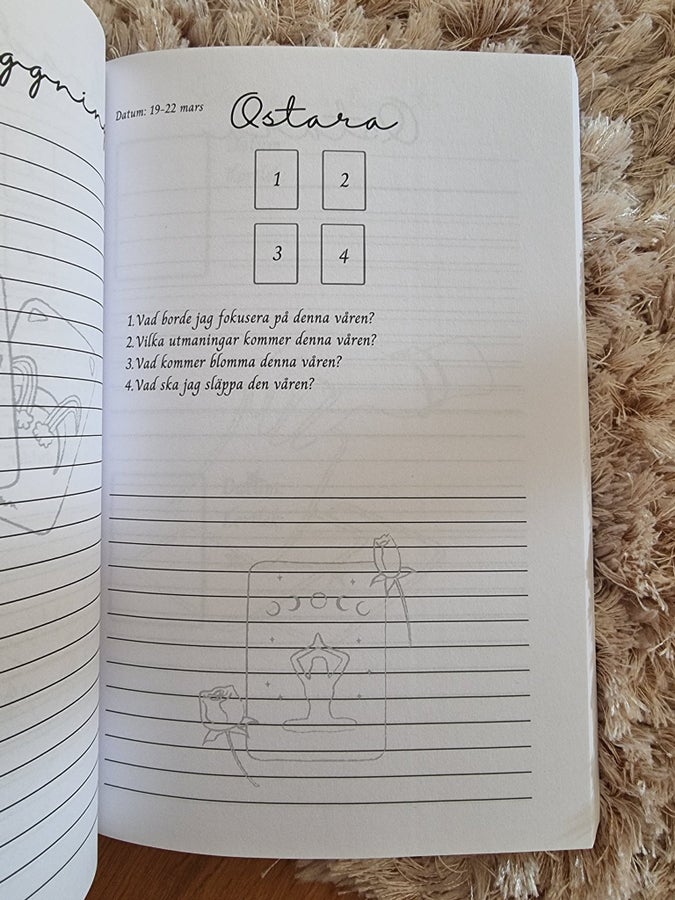 Datum: 19-22 mars
Ostara
1 2
3 4
1.Vad borde jag fokusera på denna våren?
2.Vilka utmaningar kommer denna våren?
3.Vad kommer blomma denna våren?
4.Vad ska jag släppa den våren?